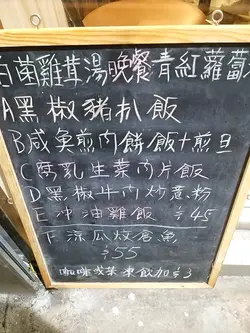 白菌雞茸湯晚餐青紅蘿蔔
A黑椒豬扒飯
B咸魚煎肉餅飯+煎旦
C腐乳生菜肉片飯
D黑椒牛肉炒意粉
E沖油雞飯 $45
F涼瓜炆倉魚
$55
咖啡或茶凍飲加$3